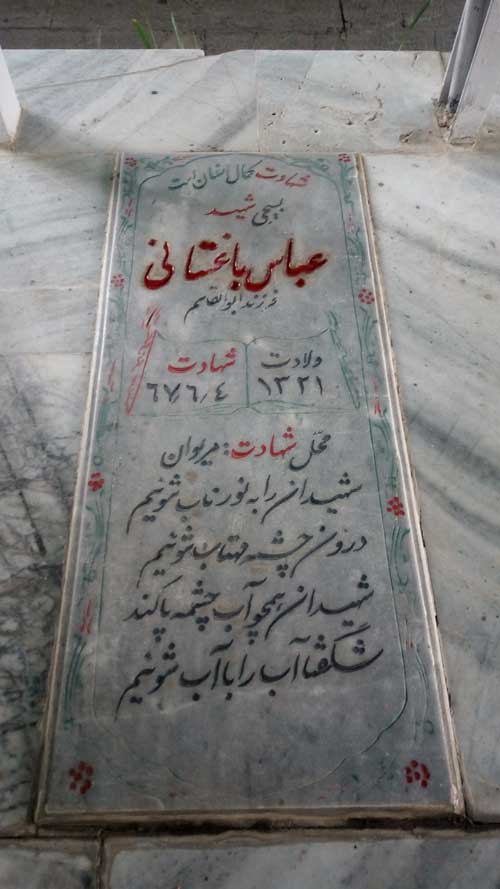 شهادت کمال انسان است
بسیجی شهید
عباس باغستانی
فرزند ابوالقاسم
ولادت شهادت
۱۳۲۱ ٦٧/٦/٤
محل شهادت: مریوان
شهیدان را به نور ناب شوئیم
درون چشمه مهتاب شوئیم
شهیدان همچو آب چشمه پاکند
شگفتا آب را با آب شوئیم